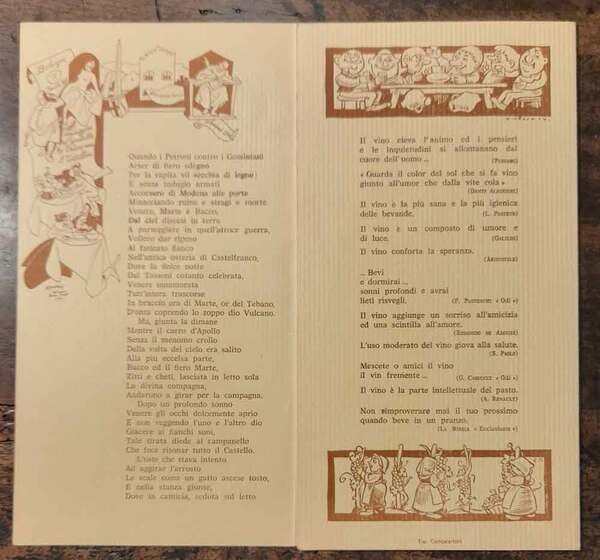 Quando i Petroni contro i Geminiani
Arser di fiero sdegno
Per la rapita vil secchia di legno
E senza indugio armati
Accorsero di Modena alle porte
Minacciando ruine e stragi e morte
Venere, Marte e Bacco,
Dal ciel discesi in terra
A parteggiare in quell'atroce guerra,
Vollero dar riposo
Al faticato fianco
Nell'antica osteria di Castelfranco,
Dove la dolce notte
Dal Tassoni cotanto celebrata,
Venere innamorata
Tutt'intera trascorse
In braccio ora di Marte, or del Tebano,
D'onta coprendo lo zoppo dio Vulcano.
Ma, giunta la dimane
Mentre il carro d'Apollo
Senza il menomo crollo
Della volta del cielo era salito
Alla più eccelsa parte,
Bacco ed il fiero Marte,
Zitti e cheti, lasciata in letto sola
La divina compagna,
Andarono a girar per la campagna.
Dopo un profondo sonno
Venere gli occhi dolcemente aprio
E non veggendo l'uno e l'altro dio
Giacere ai fianchi suoi,
Tale tirata diede al campanello
Che fece risonar tutto il Castello.
L'oste che stava intento
Ad aggirar l'arrosto
Le scale come un gatto ascese tosto,
E nella stanza giunse,
Dove in camicia, seduta sul letto
Il vino eleva l'animo ed i pensieri
e le inquietudini si allontanano dal
cuore dell'uomo ...
« Guarda il color del sol che si fa vino
giunto all'umor che dalla vite cola »
(DANTE ALIGHIERI)
Il vino è la più sana e la più igienica
delle bevande. (L. PASTEUR)
Il vino è un composto di umore e
di luce. (GALILEI)
Il vino conforta la speranza.
(ARISTOTELE)
... Bevi
e dormirai ...
sonni profondi e avrai
lieti risvegli. (F. « Odi »)
Il vino aggiunge un sorriso all'amicizia
ed una scintilla all'amore.
(EDMONDO DE AMICIS)
L'uso moderato del vino giova alla salute.
(S. PAOLO)
Mescete o amici il vino
il vin fremente ... (G. CARDUCCI « Odi »)
Il vino è la parte intellettuale del pasto.
(A. RENAULT)
Non rimproverare mai il tuo prossimo
quando beve in un pranzo.
(LA BIBBIA « Ecclesiaste »)